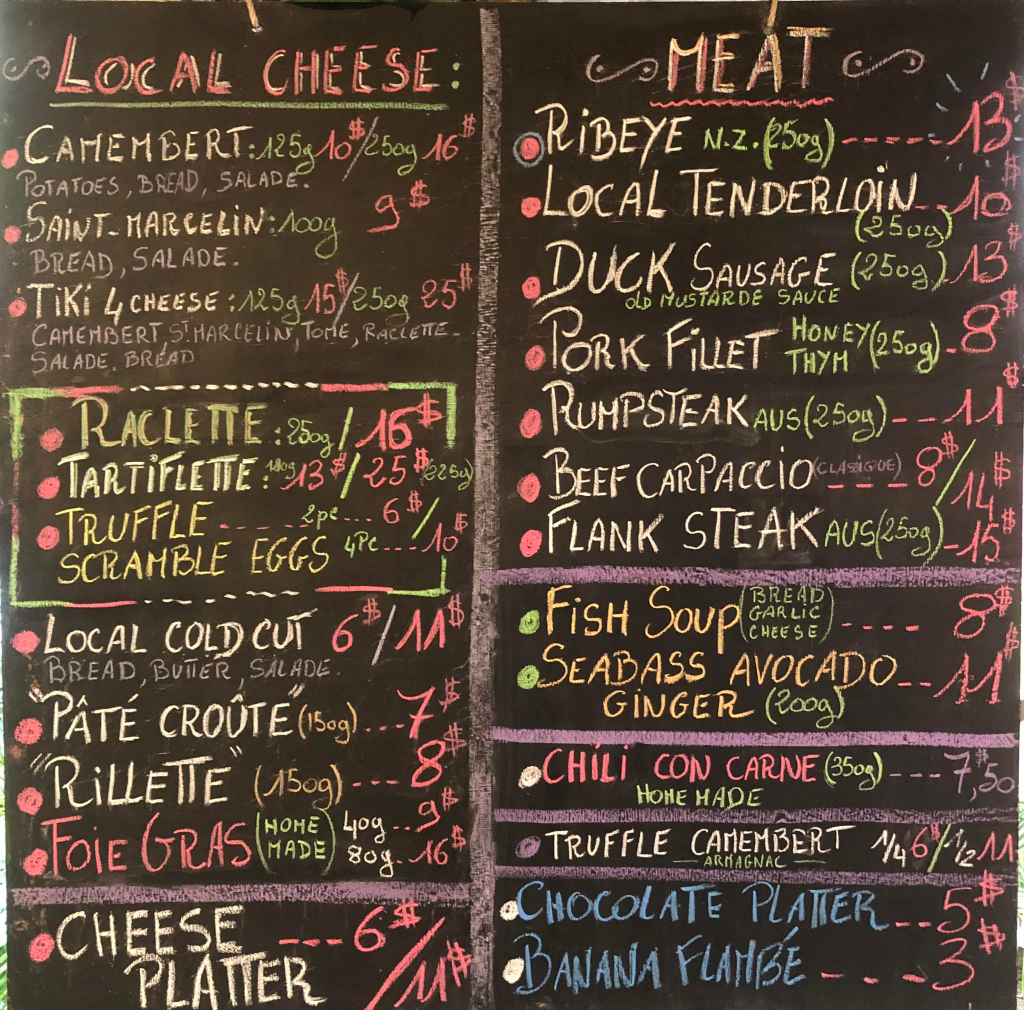 LOCAL CHEESE:
CAMEMBERT: 125g 10$/250g 16$
POTATOES, BREAD, SALADE.
SAINT-MARCELIN: 100g 9$
BREAD, SALADE.
TIKI 4 CHEESE: 125g 15$/250g 25$
CAMEMBERT, ST MARCELIN, TOME, RACLETTE-
SALADE, BREAD
RACLETTE: 250g / 16$
TARTIFLETTE: 13$ / 25$ (225g)
TRUFFLE ---- 2pc --- 6$ /
SCRAMBLE EGGS 4Pc --- 10$
LOCAL COLD CUT 6$/11$
BREAD, BUTTER, SALADE.
"PÂTÉ CROÛTE" (150g) --- 7$
"RILLETTE" (150g) --- 8$
FOIE GRAS (HOME MADE) 40g -- 9$
80g -- 16$
CHEESE PLATTER --- 6$/11$
MEAT
RIBEYE N.Z. (250g) ----- 13$
LOCAL TENDERLOIN -- 10$
(250g)
DUCK SAUSAGE (250g) - 13$
OLD MUSTARDE SAUCE
PORK FILLET HONEY THYM (250g) - 8$
RUMPSTEAK AUS (250g) -- 11$
BEEF CARPACCIO (CLASIQUE) ---- 8$/14$
FLANK STEAK AUS (250g) - 15$
FISH SOUP (BREAD GARLIC CHEESE) ---- 8$
SEABASS AVOCADO -- 11$
GINGER (200g)
CHILI CON CARNE (350g) --- 7,50$
HOME MADE
TRUFFLE CAMEMBERT 1/4 6$/1/2 11$
ARMAGNAC
CHOCOLATE PLATTER -- 5$
BANANA FLAMBÉ - - - 3$